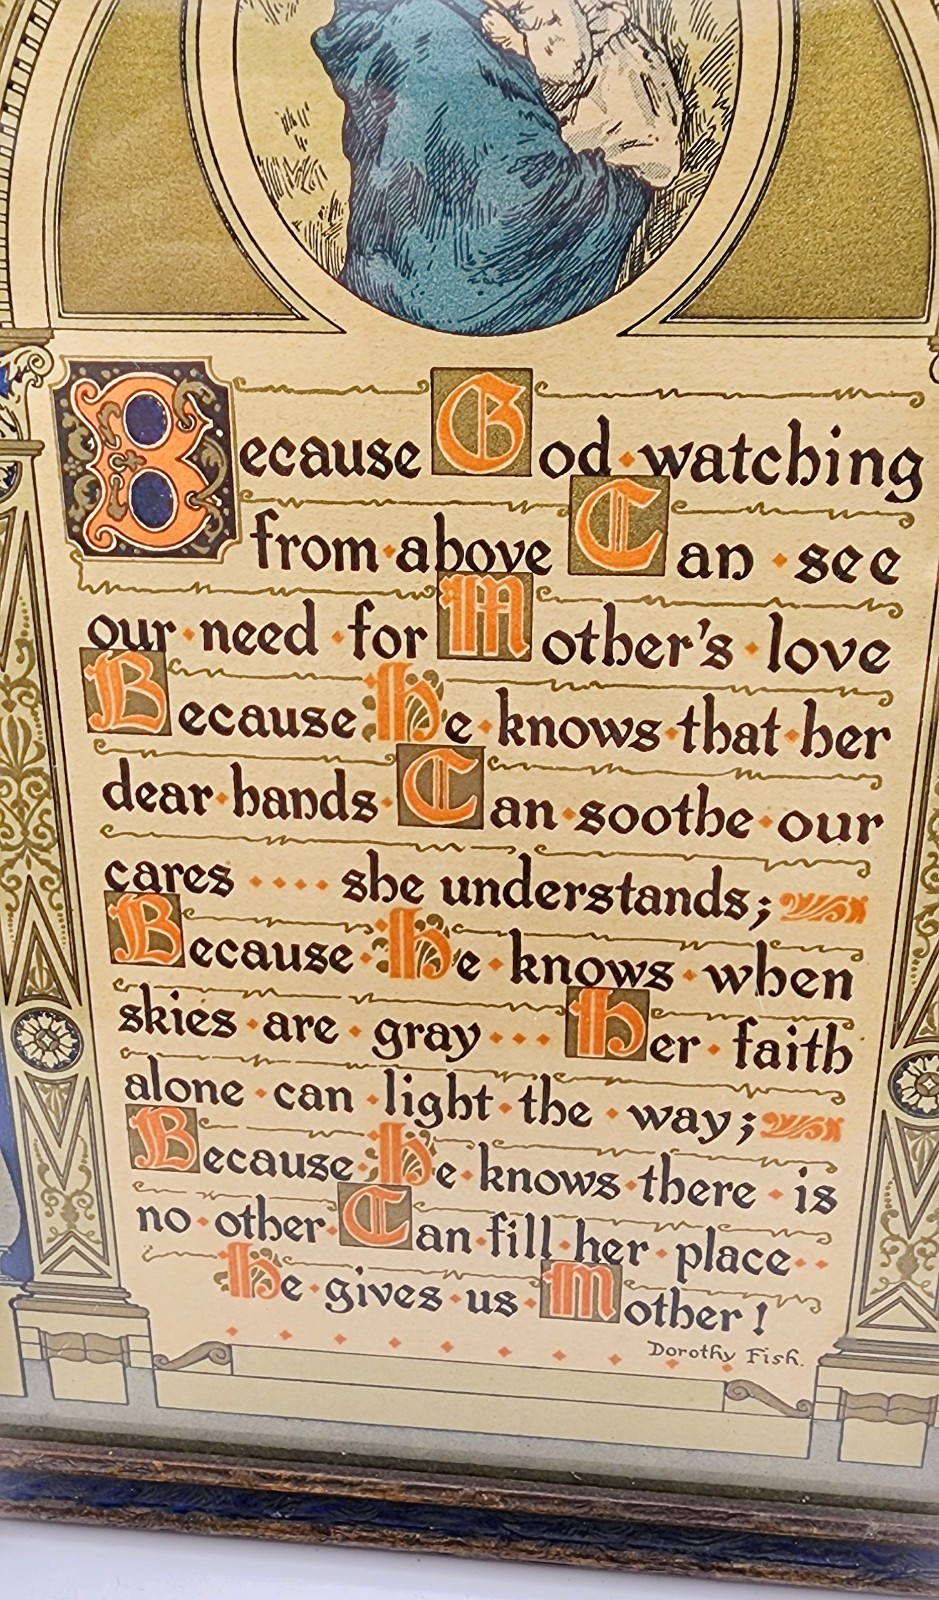 Because God watching
from above Can see
our need for Mother's love
Because He knows that her
dear hands Can soothe our
cares .... she understands;
Because He knows when
skies are gray ... Her faith
alone can light the way;
Because He knows there is
no other Can fill her place..
He gives us Mother!
Dorothy Fish.